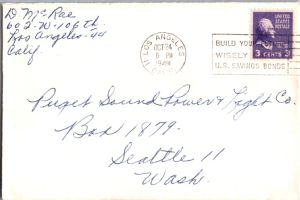 D. McRae
602-W-106th.
Los Angeles-44
Calif.
LOS ANGELES
OCT 24
6 PM
1948
CALIF.
BUILD YOUR
WISELY
U.S. SAVINGS BONDS
UNITED STATES
POSTAGE
3 CENTS 3
Puget Sound Power & Light Co.
Box 1879.
Seattle 11
Wash.